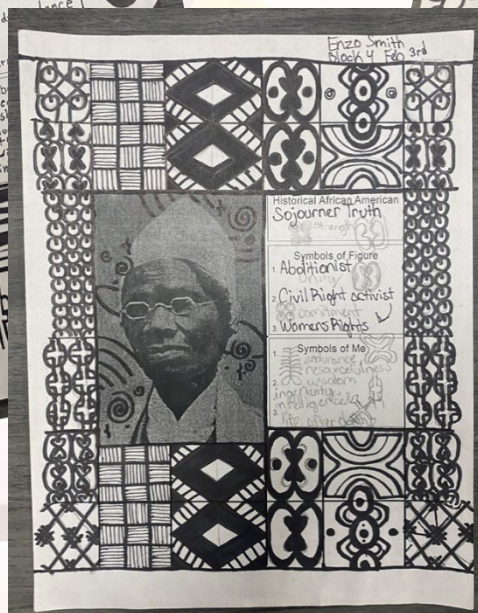 Enzo Smith
Block 4 Feb 3rd
Historical African American
Sojourner Truth
strength
Symbols of Figure
1. Abolitionist
unity
2. Civil Right activist
commitment
3. Womens Rights
Symbols of Me
1.
endurance
resourcefulness
2. wisdom
ingenuity
intelligence
3.
life